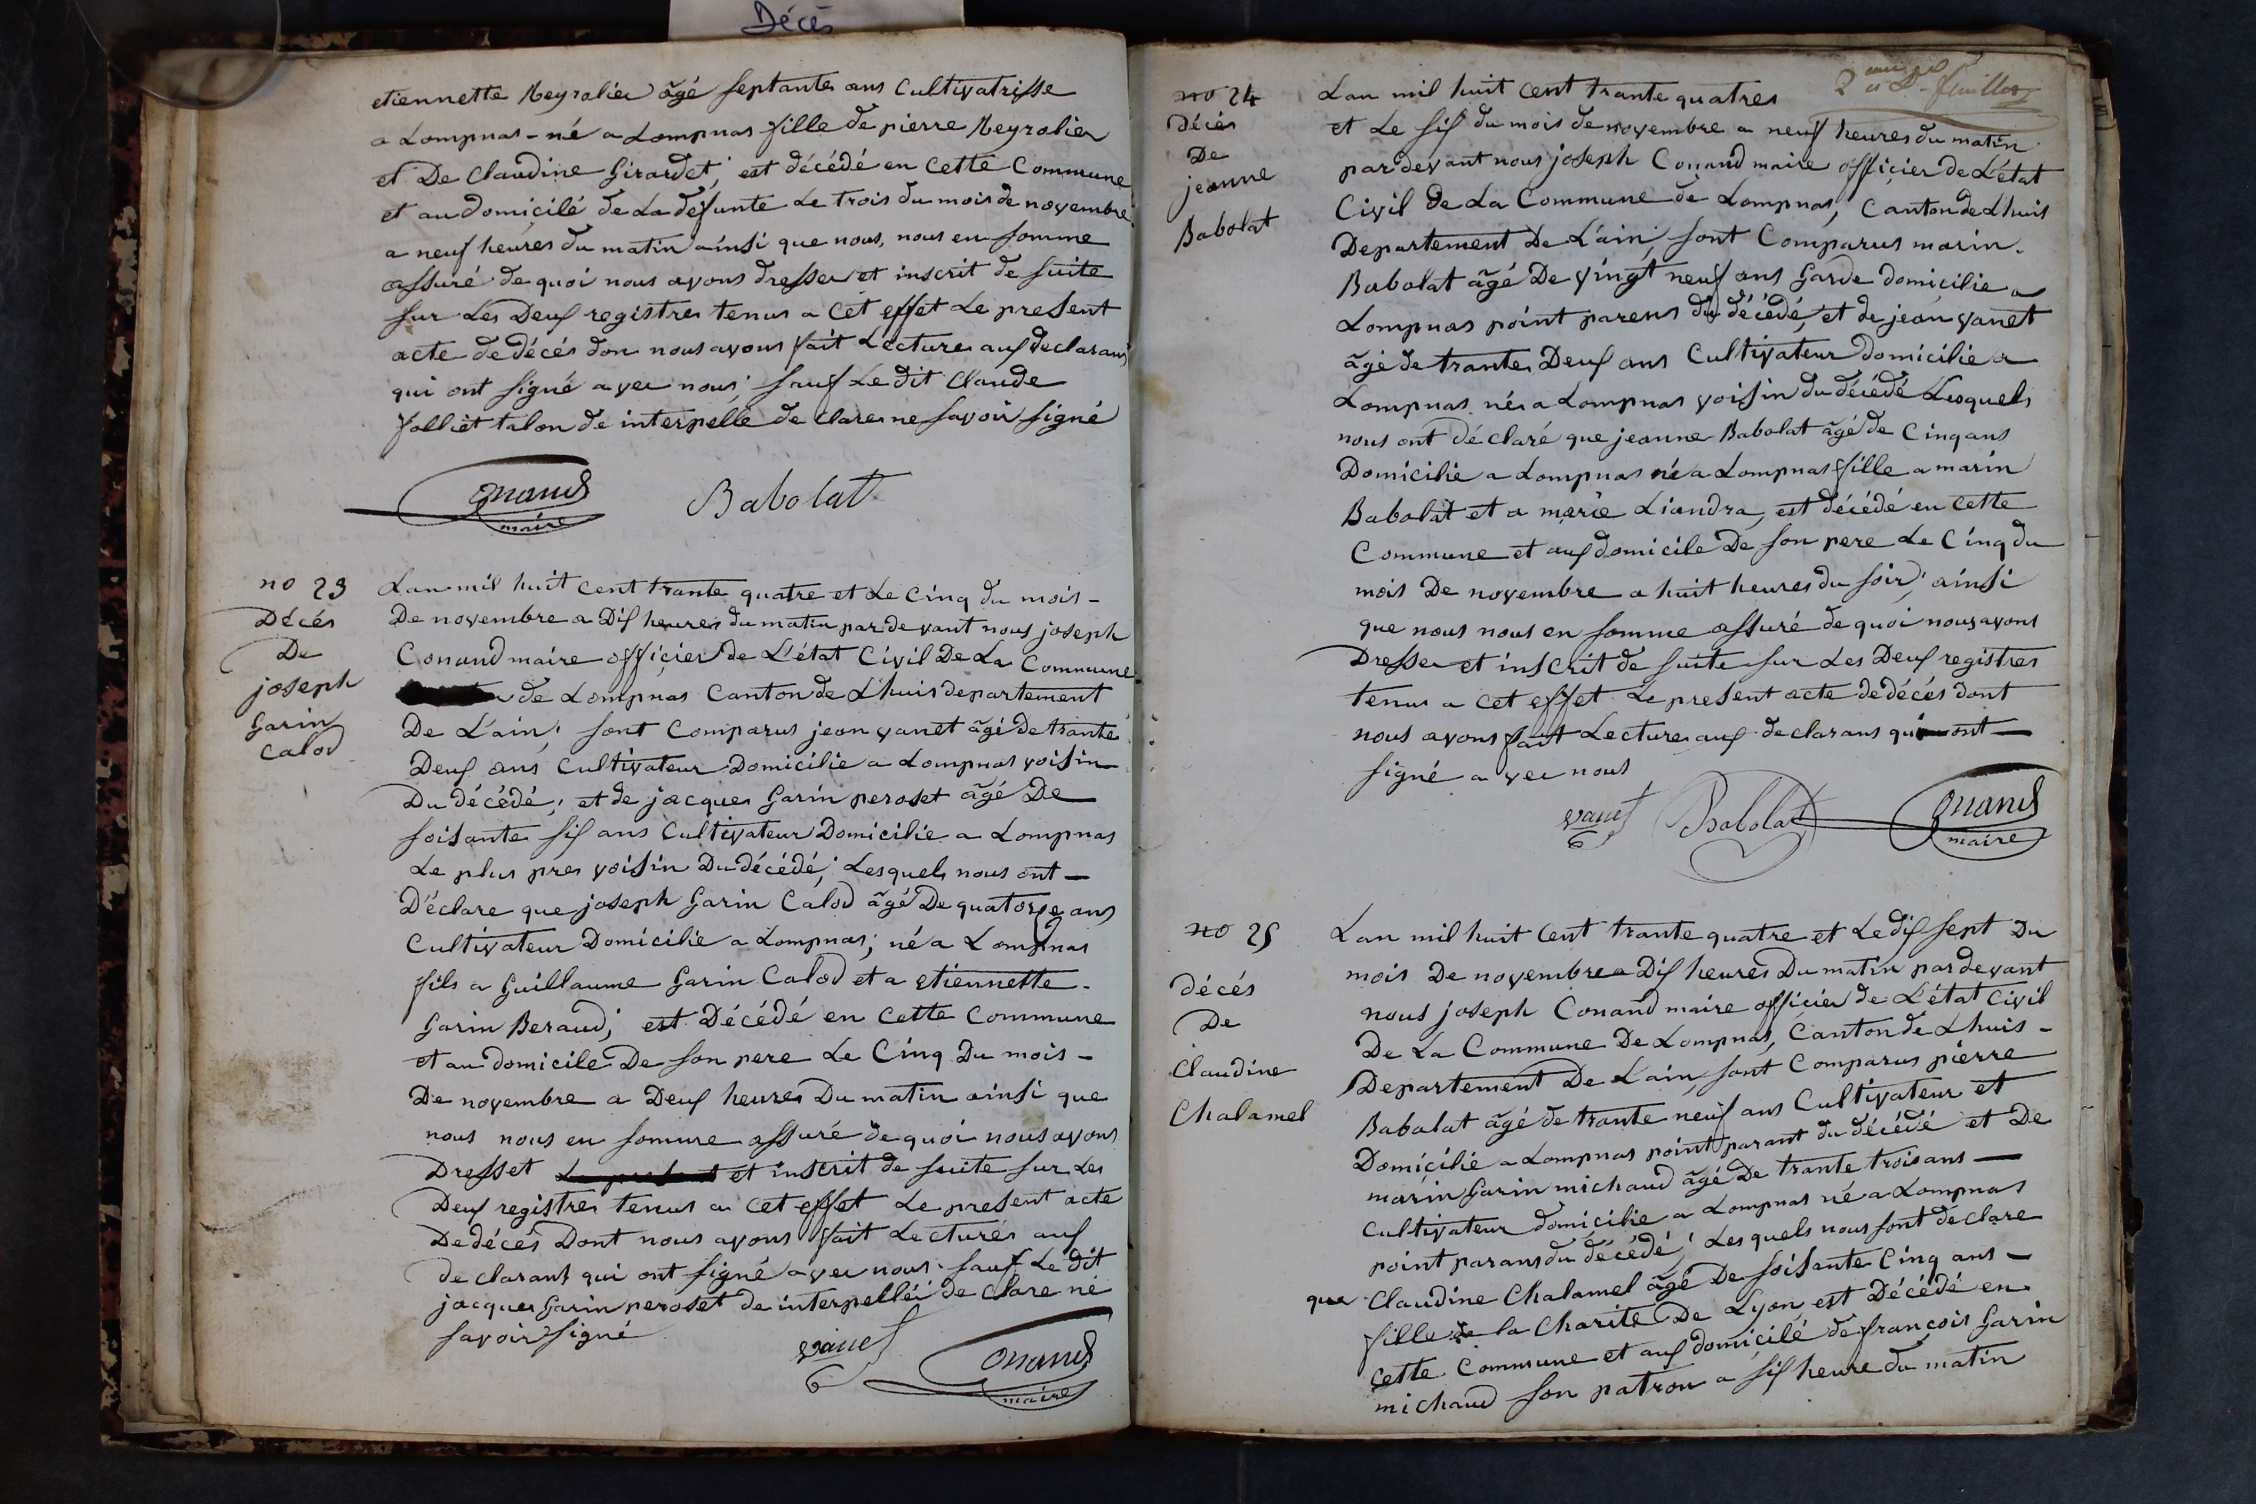 Décés
etiennette Meyralier âgé septante ans Cultivatrisse
a Lompnas - né a Lompnas fille de pierre Meyralier
et De Claudine Girardet, est décédé en cette Commune
et au domicilé de La defunte Le trois du mois de novembre
a neuf heures du matin ainsi que nous, nous en somme
assuré de quoi nous avons dresser et inscrit de suite
sur Les Deux registres tenus a cet effet Le present
acte de décés don nous avons fait Lecture aux declarans
qui ont signé avec nous; sauf Le dit Claude
folliet talon de interpellé de clarer ne savoir signé
Conand
maire
Babolat
no 23
Décés
De
joseph
Garin
Calod
Lan mil huit cent trante quatre et Le Cinq du mois -
De novembre a Dix heures du matin par devant nous joseph
Conand maire officier de L'état Civil De La Commune
de Lompnas Canton de Lhuis departement
De L'ain; sont Comparus jean vanet âgé de trante
Deux ans Cultivateur Domicilie a Lompnas voisin
Du décédé; et de jacques Garin peroset âgé De
soisante six ans Cultivateur Domicilie a Lompnas
Le plus pres voisin Du décédé; Lesquels nous ont -
Déclare que joseph Garin Calod âgé De quatorze ans
Cultivateur Domicilie a Lompnas; né a Lompnas
fils a Guillaume Garin Calod et a etiennette -
Garin Beraud; est Décédé en cette Commune
et au domicile De son pere Le Cinq Du mois -
De novembre a Deux heures Du matin ainsi que
nous nous en somme assuré de quoi nous avons
Dresset Le present et inscrit de suite sur Les
Deux registres tenus a cet effet Le present acte
De décés Dont nous avons fait Lecturés aux
declarant qui ont signé avec nous. sauf Le dit
jacques Garin peroset de interpelléi de clare né
savoir signé
vanet
Conand
maire
2 feuillet
no 24
Décés
De
jeanne
Babolat
Lan mil huit cent trante quatres
et Le six du mois de novembre a neuf heures du matin
par devant nous joseph Conand maire officier de L'état
Civil de La Commune de Lompnas, Canton de Lhuis
Departement De L'ain; sont Comparus marin -
Babolat âgé De vingt neuf ans Garde domicilie a
Lompnas point parens du décédé, et de jean vanet
âgé de trante Deux ans Cultivateur domicilie a
Lompnas né a Lompnas voisin du décédé Lesquels
nous ont déclaré que jeanne Babolat âgé de Cinq ans
Domicilie a Lompnas né a Lompnas fille a marin
Babolat et a marie Liandra, est décédé en cette
Commune et aux domicile De son pere Le Cinq du
mois De novembre a huit heures du soir; ainsi
que nous nous en somme assuré de quoi nous avons
Dresser et inscrit de suite sur Les Deux registres
tenus a cet effet Le present acte de décés dont
nous avons fait Lectures aux declarans qui ont -
signé avec nous
vanet
Babolat
Conand
maire
no 25
décés
De
Claudine
Chalamel
Lan mil huit Cent trante quatre et Le dix sept Du
mois De novembre a Dix heures Du matin par devant
nous joseph Conand maire officier de L'état Civil
De La Commune De Lompnas, Canton de Lhuis -
Departement De L'ain, sont Comparus pierre
Babalat âgé de trante neuf ans Cultivateur et
Domicilié a Lompnas point parant du décédé et De
marin Garin michaud âgé De trante trois ans -
Cultivateur domicilie a Lompnas né a Lompnas
point parans du décédé; Lesquels nous sont declare
que Claudine Chalamel âgé De soisante Cinq ans -
fille de la Charité De Lyon, est Décédé en
cette Commune et aux domicilé de françois Garin
michaud son patron a six heure du matin